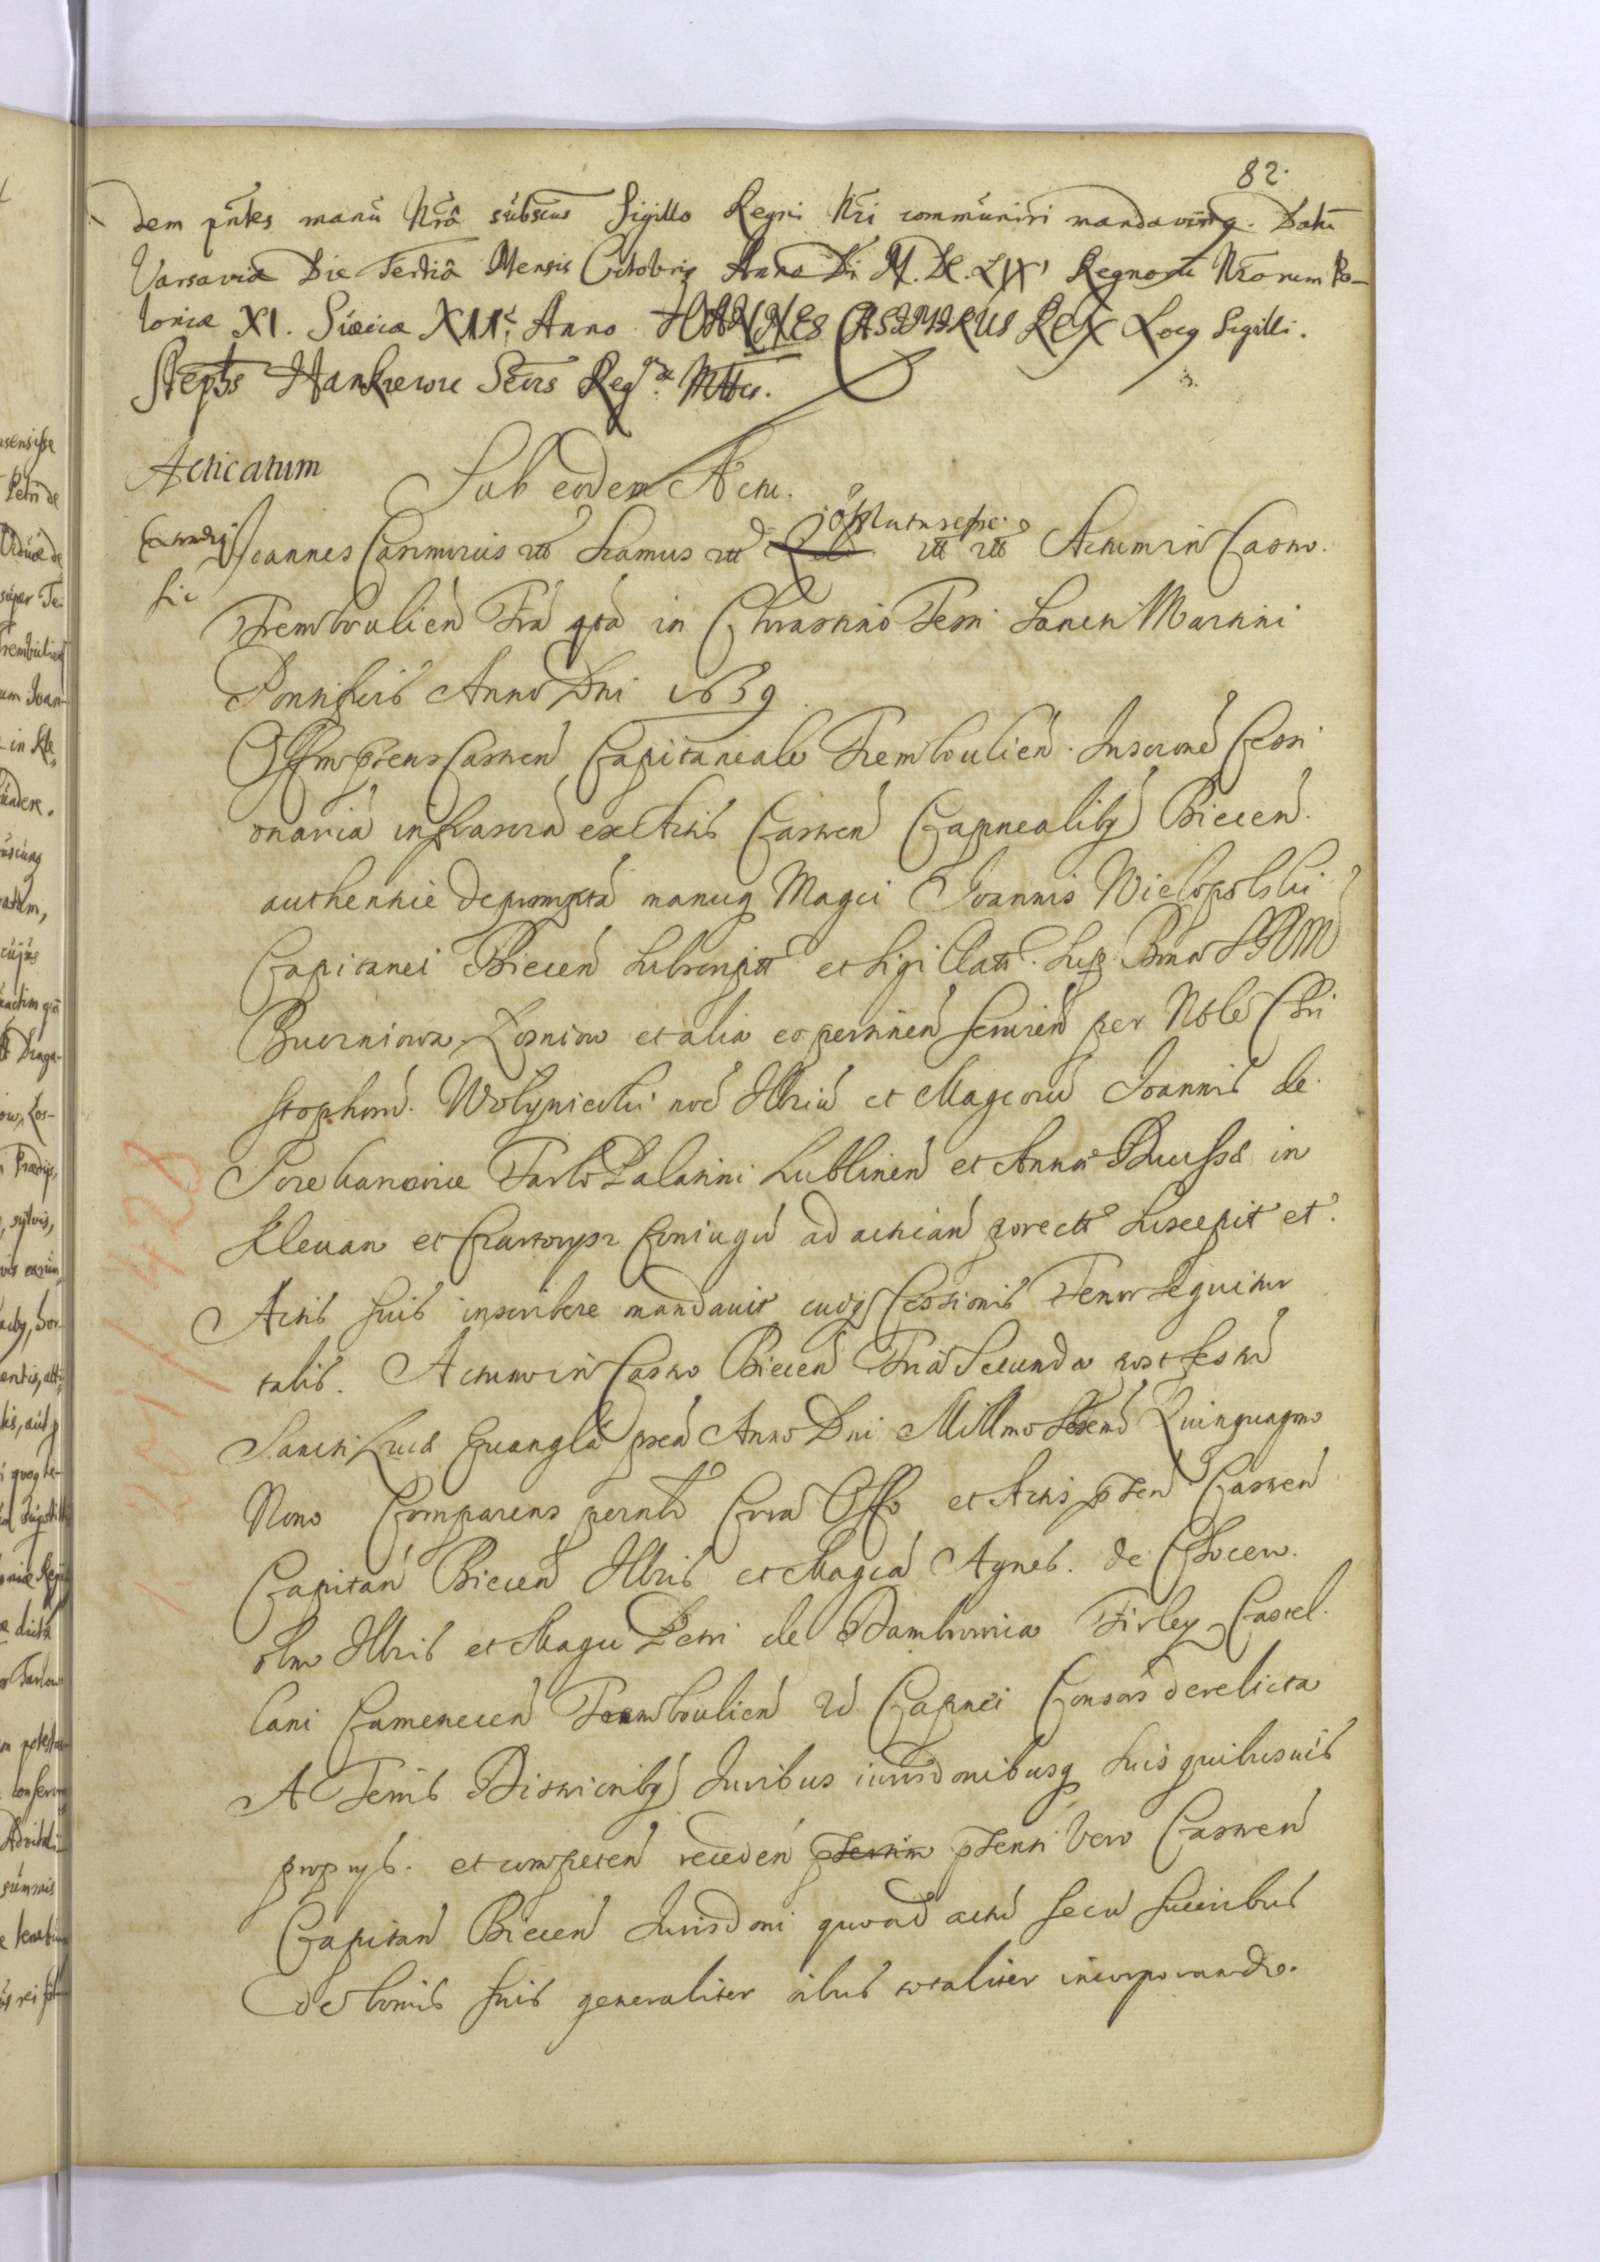 82.
dem pntes manu Nrâ subscrs Sigillo Regni Nri communiri mandavimq. Datu
Varsaviæ Die Tertiâ Mensis Octobris Anno Di M.DC.LIX Regnoru Nrorum Po-
loniæ XI. Sueciæ XII. Anno IOANNES CASIMIRUS REX Locq Sigilli.
Stephs Hankiewic Secrs Regæ Mttis.
Acticatum
Sub eodem Actu.
Joannes Casimirus rtt Scamus rtt rtt rtt Actum in Castro
sic
Trembouliën Fria qta in Chrastino Festi Sancti Martini
Pontificis Anno Dni 1659
Offm ptens Castren Capitaneale Trembouliën. Inscrone Cessi
onaria infrascra ex Actis Castren Capnealibq Biecen
authentice depromptâ manuq Magci Joannis Wielopolski
Capitanei Biecen Subscriptt et Sigillatt. Sup Bona
Loniow et alia eo pertinen servien per Nble Chri
stophoru Wolynicki noe Illriu et Magcoru Joannis de
Tarlo Palatini Lublinen et Annæ in
Klevan et Czartorysz Coniugu ad actican porectt Suscepit et
Actis suis inscribere mandavit cuiq Cessionis Tenor Sequitur
talis. Actum in Castro Biecen Fria Secunda post festu
Sancti Lucæ Euangla pxa Anno Dni Millmo Sexcn Quinquagmo
Nono Comparens persnlr Cora Offo et Actis pten Castren
Capitan Biecen Illris et Magca Agnes de
olm Illris et Magci Petri de Dambrowica Firley Castel
lani Camenecen Trembouliën Capnei Consors derelicta
A Terris Districtibq Juribus iurisdonibusq suis quibusuis
proprys. et competen receden ptenti vero Castren
Capitan Biecen Jurisdoni quoad actu
de bonis suis generaliter oibus totaliter incorporando.
1.201/428